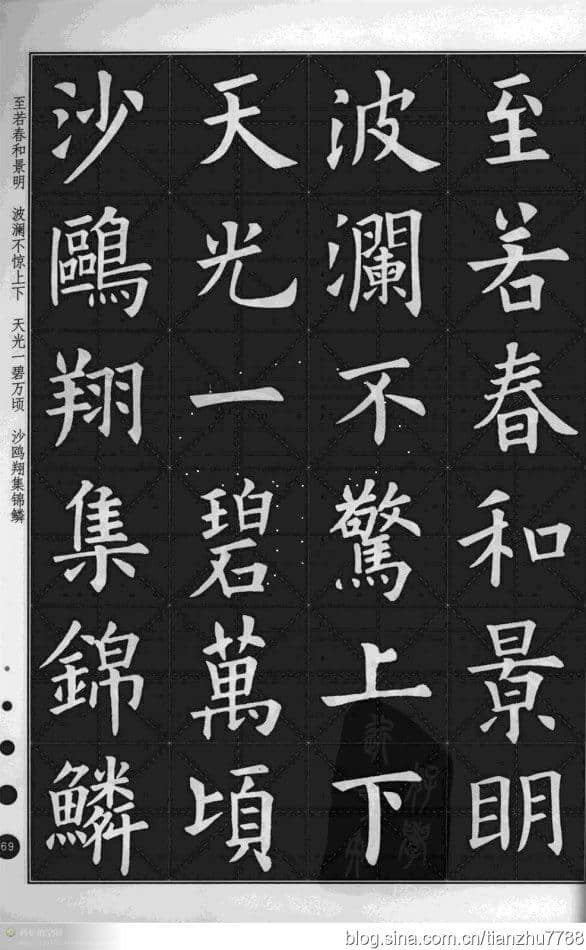 至若春和景明
波瀾不驚上下
天光一碧萬頃
沙鷗翔集錦鱗
至若春和景明　波澜不惊上下　天光一碧万顷　沙鸥翔集锦鳞
69
blog.sina.com.cn/tianzhu7788